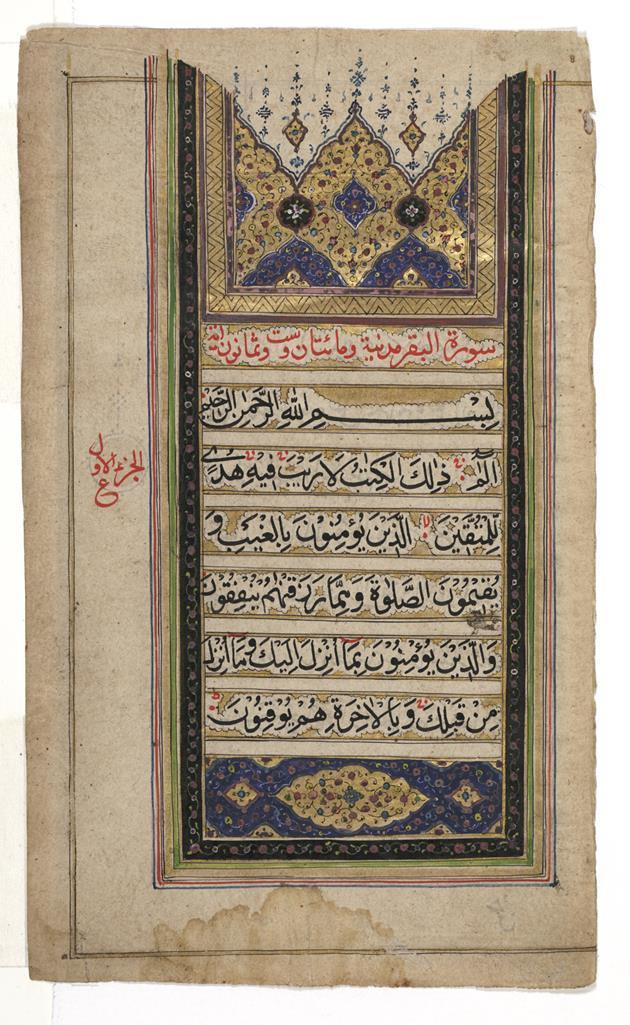 سورة البقر مدنية ومائتان وست وثمانون اية
بسم الله الرحمن الرحيم
الٓمٓ ذٰلِكَ الْكِتٰبُ لَا رَيْبَ فِيْهِ هُدًى
لِلْمُتَّقِيْنَ الَّذِيْنَ يُؤْمِنُوْنَ بِالْغَيْبِ وَ
يُقِيْمُوْنَ الصَّلٰوةَ وَمِمَّا رَزَقْنٰهُمْ يُنْفِقُوْنَ
وَالَّذِيْنَ يُؤْمِنُوْنَ بِمَآ اُنْزِلَ اِلَيْكَ وَمَآ اُنْزِلَ
مِنْ قَبْلِكَ وَبِالْاٰخِرَةِ هُمْ يُوْقِنُوْنَ
الجزء الاول